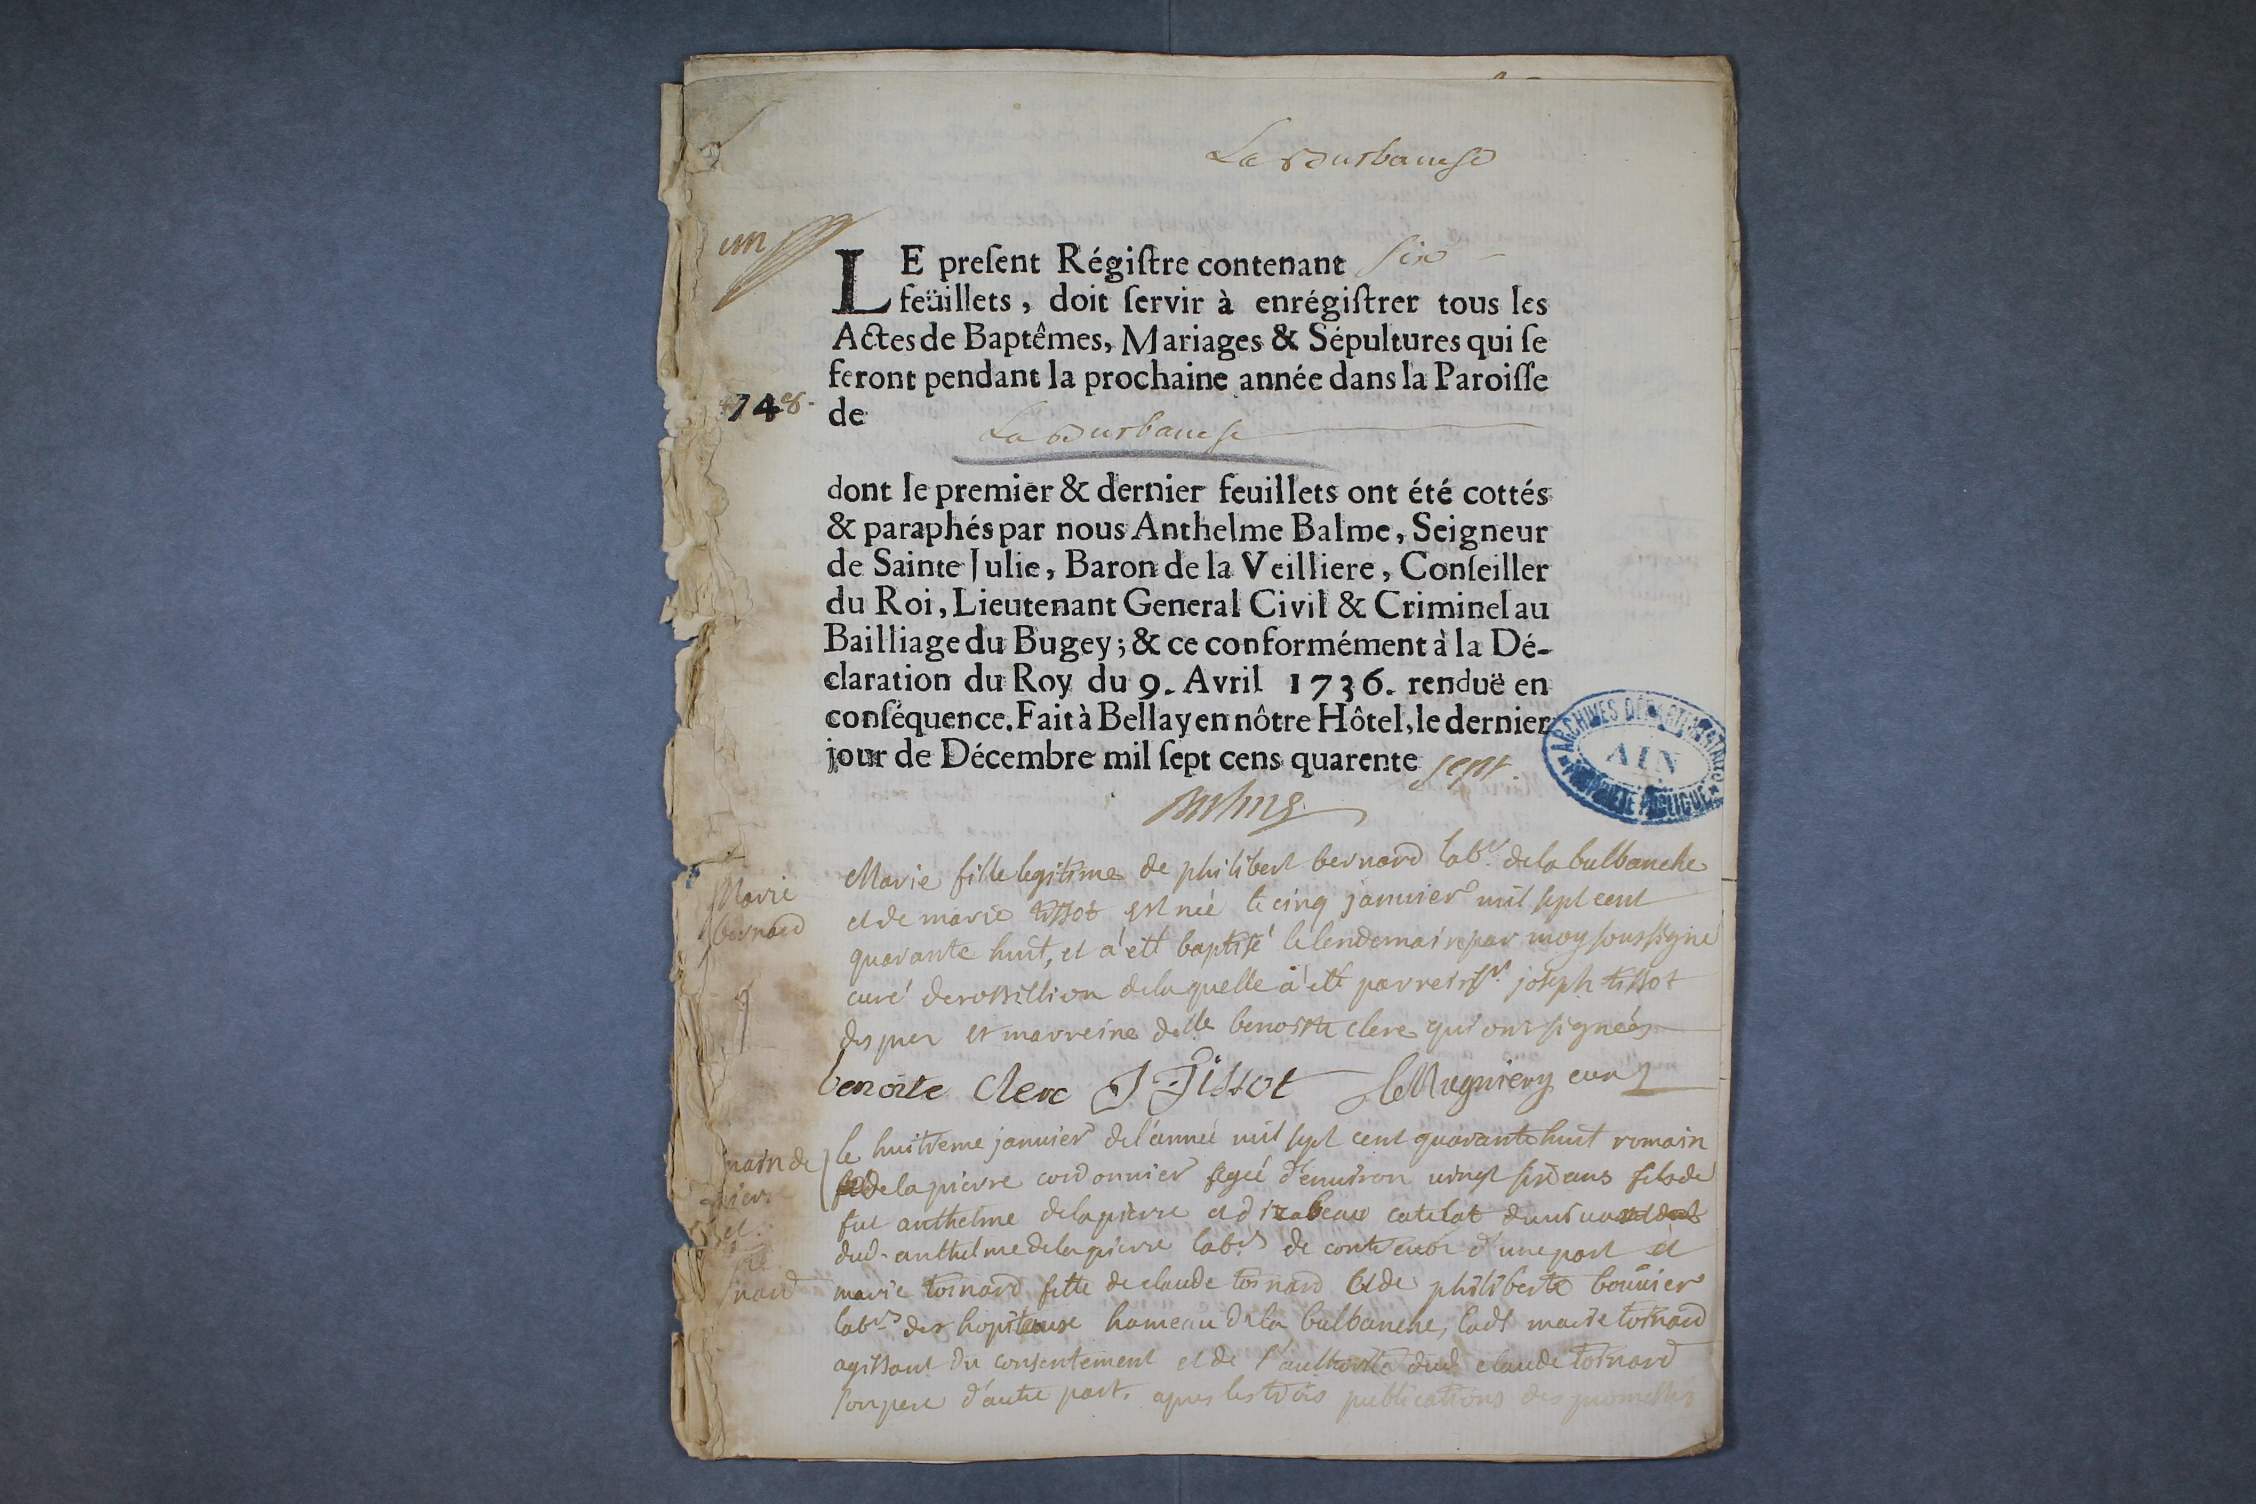 La Burbanche
un
LE preſent Régiſtre contenant six
feüillets, doit ſervir à enrégiſtrer tous les
Actes de Baptêmes, Mariages & Sépultures qui ſe
feront pendant la prochaine année dans la Paroiſſe
1748.
de
La Burbanche
dont le premier & dernier feuillets ont été cottés
& paraphés par nous Anthelme Balme, Seigneur
de Sainte Julie, Baron de la Veilliere, Conſeiller
du Roi, Lieutenant General Civil & Criminel au
Bailliage du Bugey; & ce conformément à la Dé-
claration du Roy du 9. Avril 1736. renduë en
conſéquence. Fait à Bellay en nôtre Hôtel, le dernier
jour de Décembre mil ſept cens quarente sept.
ARCHIVES DÉPARTEMENTALES
AIN
PROPRIÉTÉ PUBLIQUE
Marie
bernard
Marie fille legitime de philibert bernard labr. de la bulbanche
et de marie tissot est née le cinq janvier mil sept cent
quarante huit, et a été baptisé le lendemain par moy soussigné
curé de rossillion de laquelle a été parrein sr. joseph tissot
et marreine delle benoite clerc qui ont signées
benoite Clerc J Tissot Mugniery curé
main de
pierre
et
nard
le huitieme janvier de l'année mil sept cent quarante huit romain
delapierre cordonnier agé d'environ vingt six ans fils de
fut anthelme delapierre et d'izabeau catelat
dud. anthelme delapierre labr. de d'une part et
marie toinard fille de claude toinard et de philiberte bouvier
labrs. des hopitaux hameau de la bulbanche, ladt marie toinard
agissant du consentement et de l'authorité dud claude toinard
son pere d'autre part. apres les trois publications des promesses